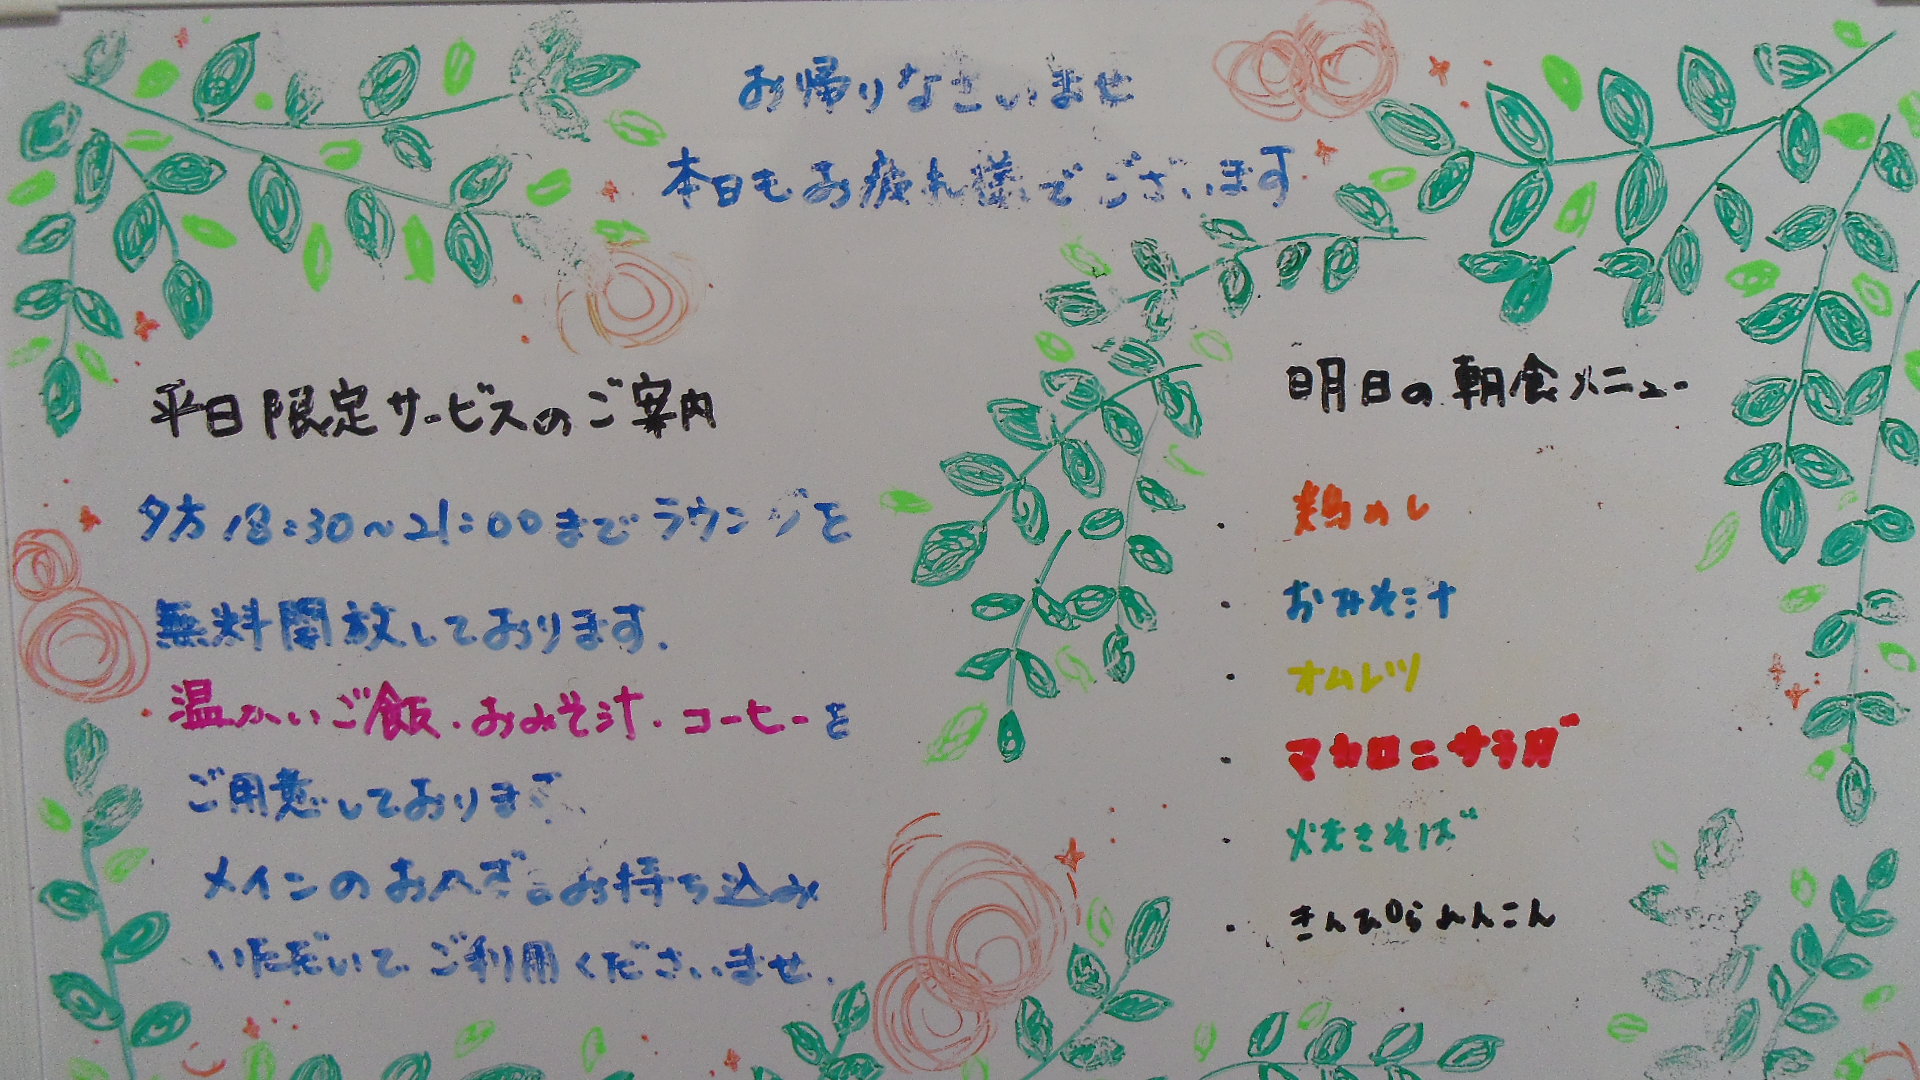 お帰りなさいませ
本日もお疲れ様でございます
平日限定サービスのご案内
夕方18:30~21:00までラウンジを
無料開放しております.
温かいご飯・おみそ汁・コーヒーを
ご用意しております.
メインのおかずをお持ち込み
いただいてご利用くださいませ.
明日の朝食メニュー
・鶏めし
・おみそ汁
・オムレツ
・マカロニサラダ
・焼きそば
・きんぴられんこん